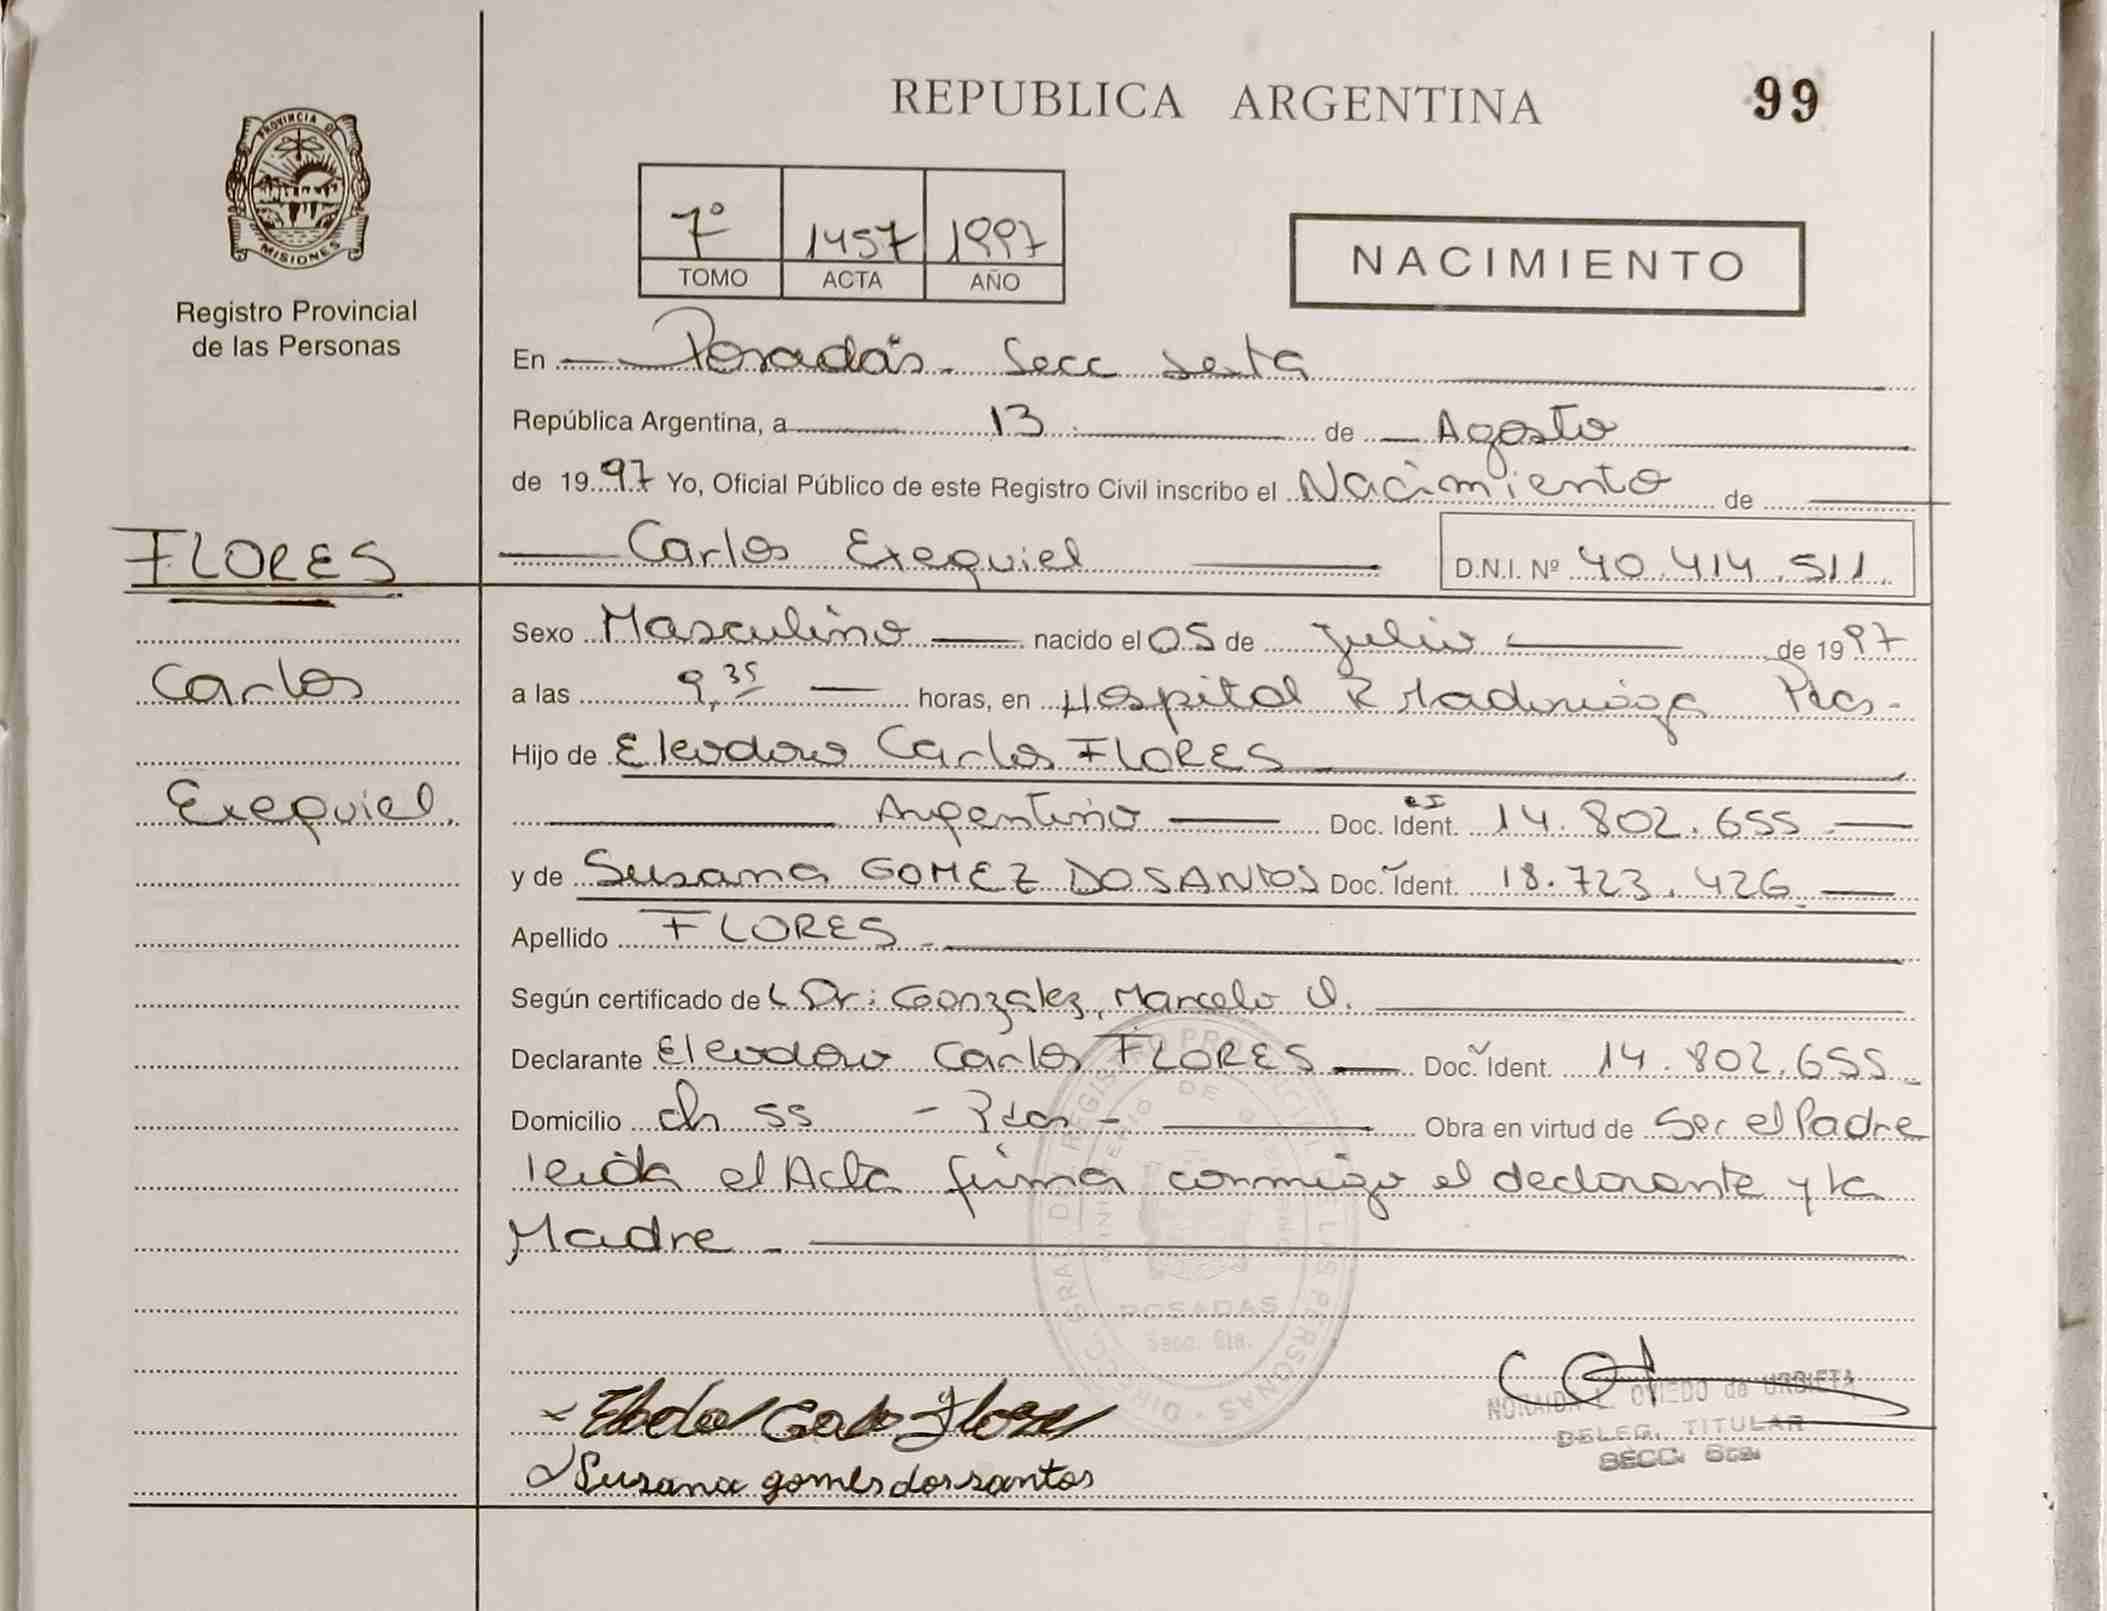 REPUBLICA ARGENTINA
99
PROVINCIA DE
MISIONES
Registro Provincial
de las Personas
7º 1457 1997
TOMO ACTA AÑO
NACIMIENTO
En Posadas - Secc Sexta
República Argentina, a 13 de Agosto
de 1997 Yo, Oficial Público de este Registro Civil inscribo el Nacimiento de
Carlos Exequiel D.N.I. Nº 40.414.511.
FLORES
Carlos
Exequiel.
Sexo Masculino nacido el 05 de Julio de 1997
a las 9,35 horas, en Hospital R Madariaga Pdas-
Hijo de Eleodoro Carlos FLORES
Argentino Doc. Ident. 14.802.655
y de Susana GOMEZ DOSANTOS Doc. Ident. 18.723.426
Apellido FLORES
Según certificado de Dr: Gonzalez, Marcelo
Declarante Eleodoro Carlos FLORES Doc. Ident. 14.802.655
Domicilio ch 55 - Pdas - Obra en virtud de Ser el Padre
leida el Acta firma conmigo el declarante y la
Madre -
DIRECC. GRAL. DEL REGISTRO PROVINCIAL DE LAS PERSONAS
MINISTERIO DE GOBIERNO
POSADAS
Secc. 6ta.
Carlos Flores
Susana gomes dos santos
OVIEDO de URDIETA
DELEG. TITULAR
SECC. 6ta.